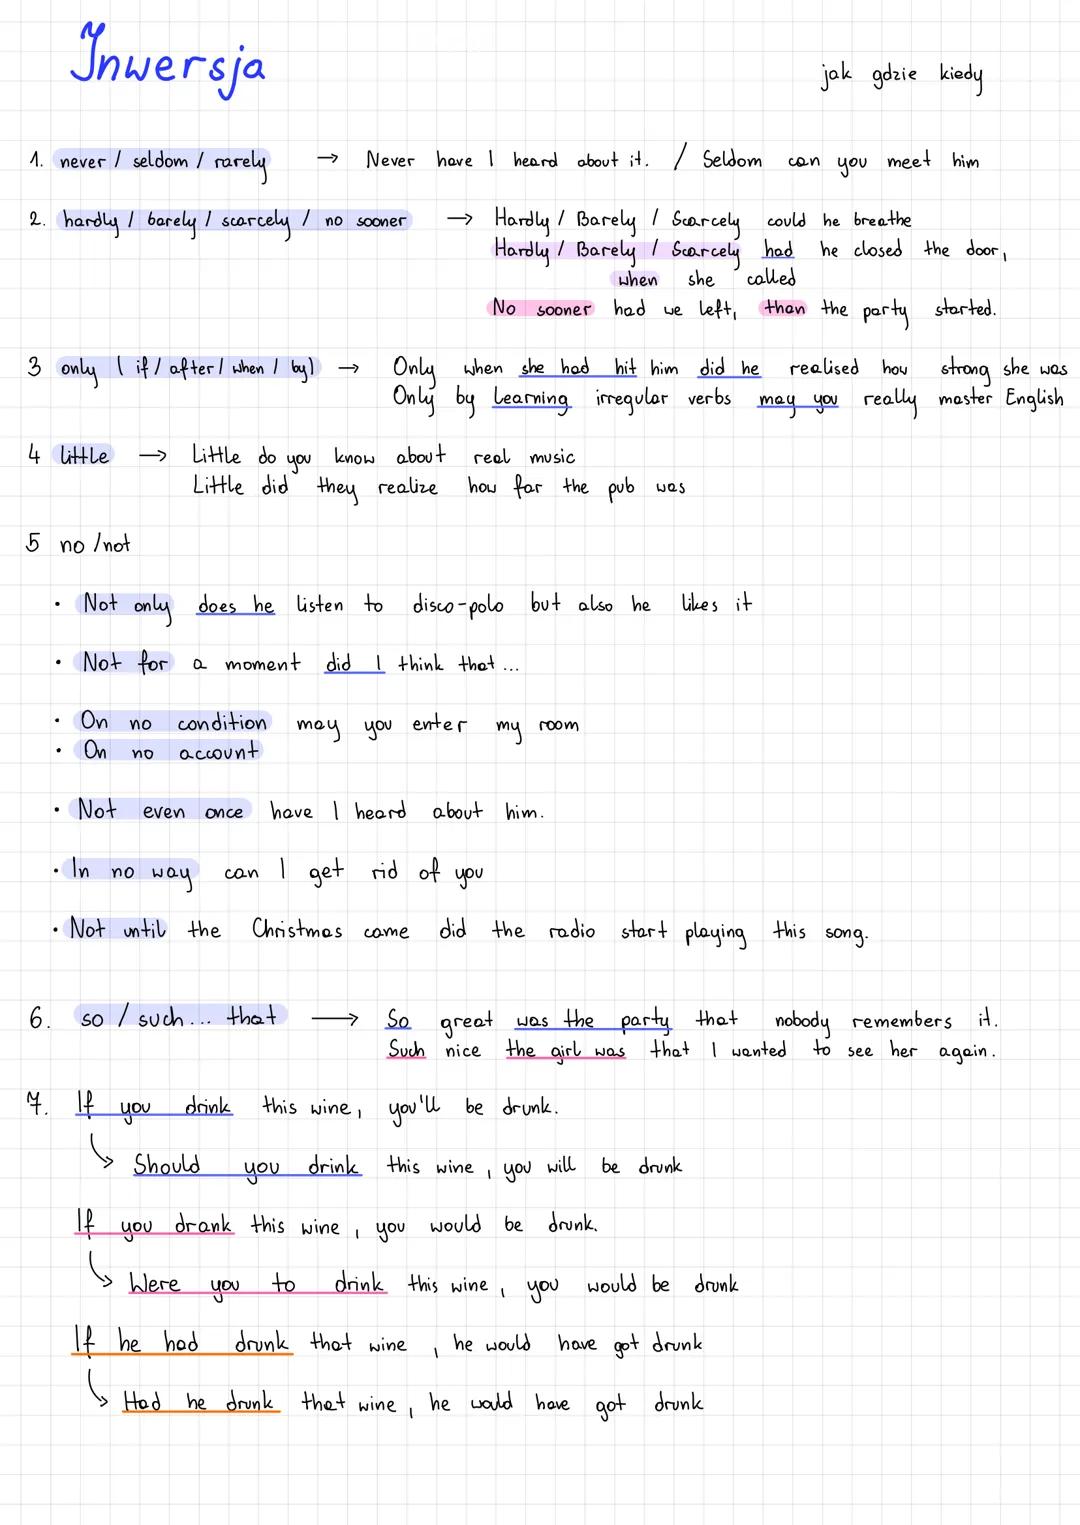 Inwersja
jak gdzie kiedy
1. never / seldom / rarely → Never have I heard about it. / Seldom can you meet him
2. hardly / barely / scarcely / no sooner → Hardly / Barely / Scarcely could he breathe
Hardly / Barely / Scarcely had he closed the door,
when she called
No sooner had we left, than the party started.
3 only ( if / after / when / by) → Only when she had hit him did he realised how strong she was
Only by learning irregular verbs may you really master English
4 little → Little do you know about real music
Little did they realize how far the pub was
5 no /not
• Not only does he listen to disco-polo but also he likes it
• Not for a moment did I think that...
• On no condition may you enter my room
• On no account
• Not even once have I heard about him.
• In no way can I get rid of you
• Not until the Christmas came did the radio start playing this song.
6. so / such... that → So great was the party that nobody remembers it.
Such nice the girl was that I wanted to see her again.
7. If you drink this wine, you'll be drunk.
↳ Should you drink this wine, you will be drunk
If you drank this wine, you would be drunk.
↳ Were you to drink this wine, you would be drunk
If he had drunk that wine, he would have got drunk
↳ Had he drunk that wine, he would have got drunk